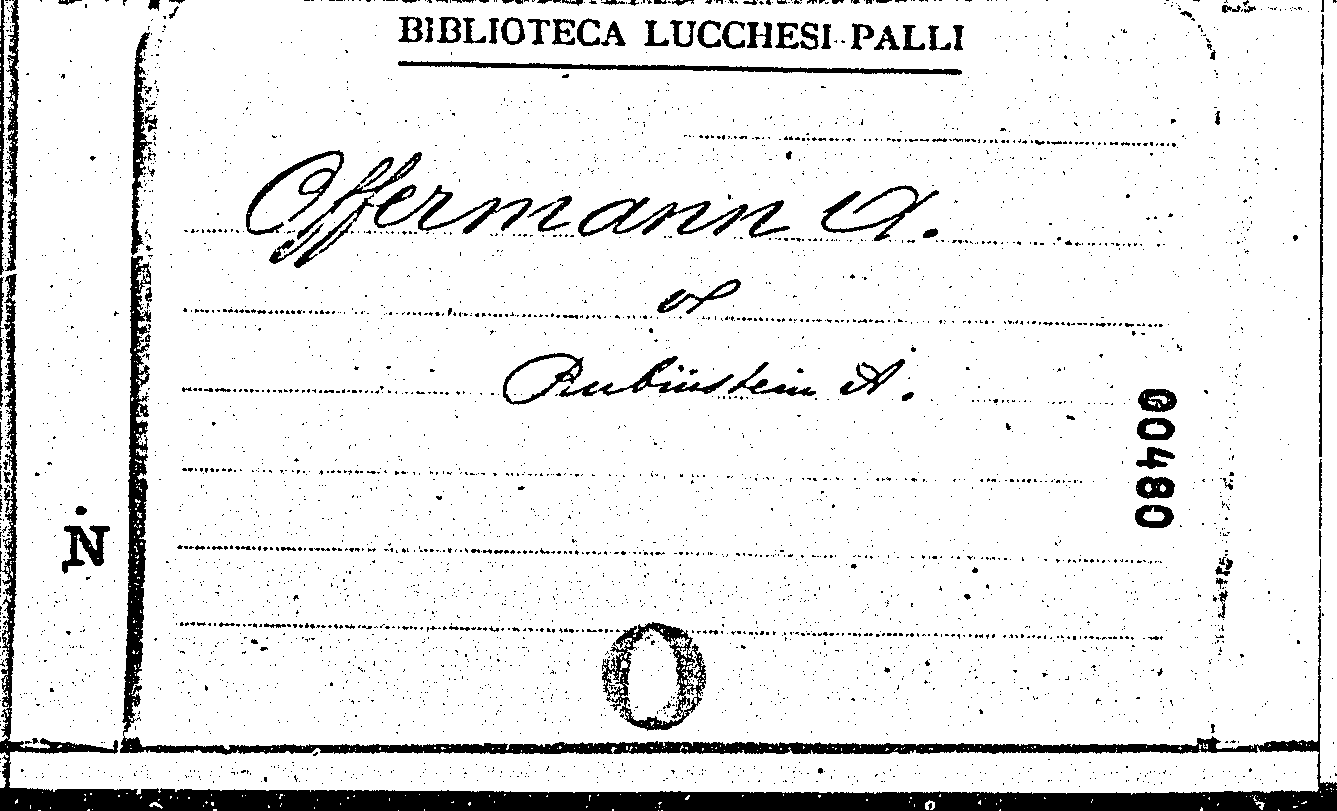 BIBLIOTECA LUCCHESI-PALLI
Offermann A.
Rubinstein A.
00480
N
O